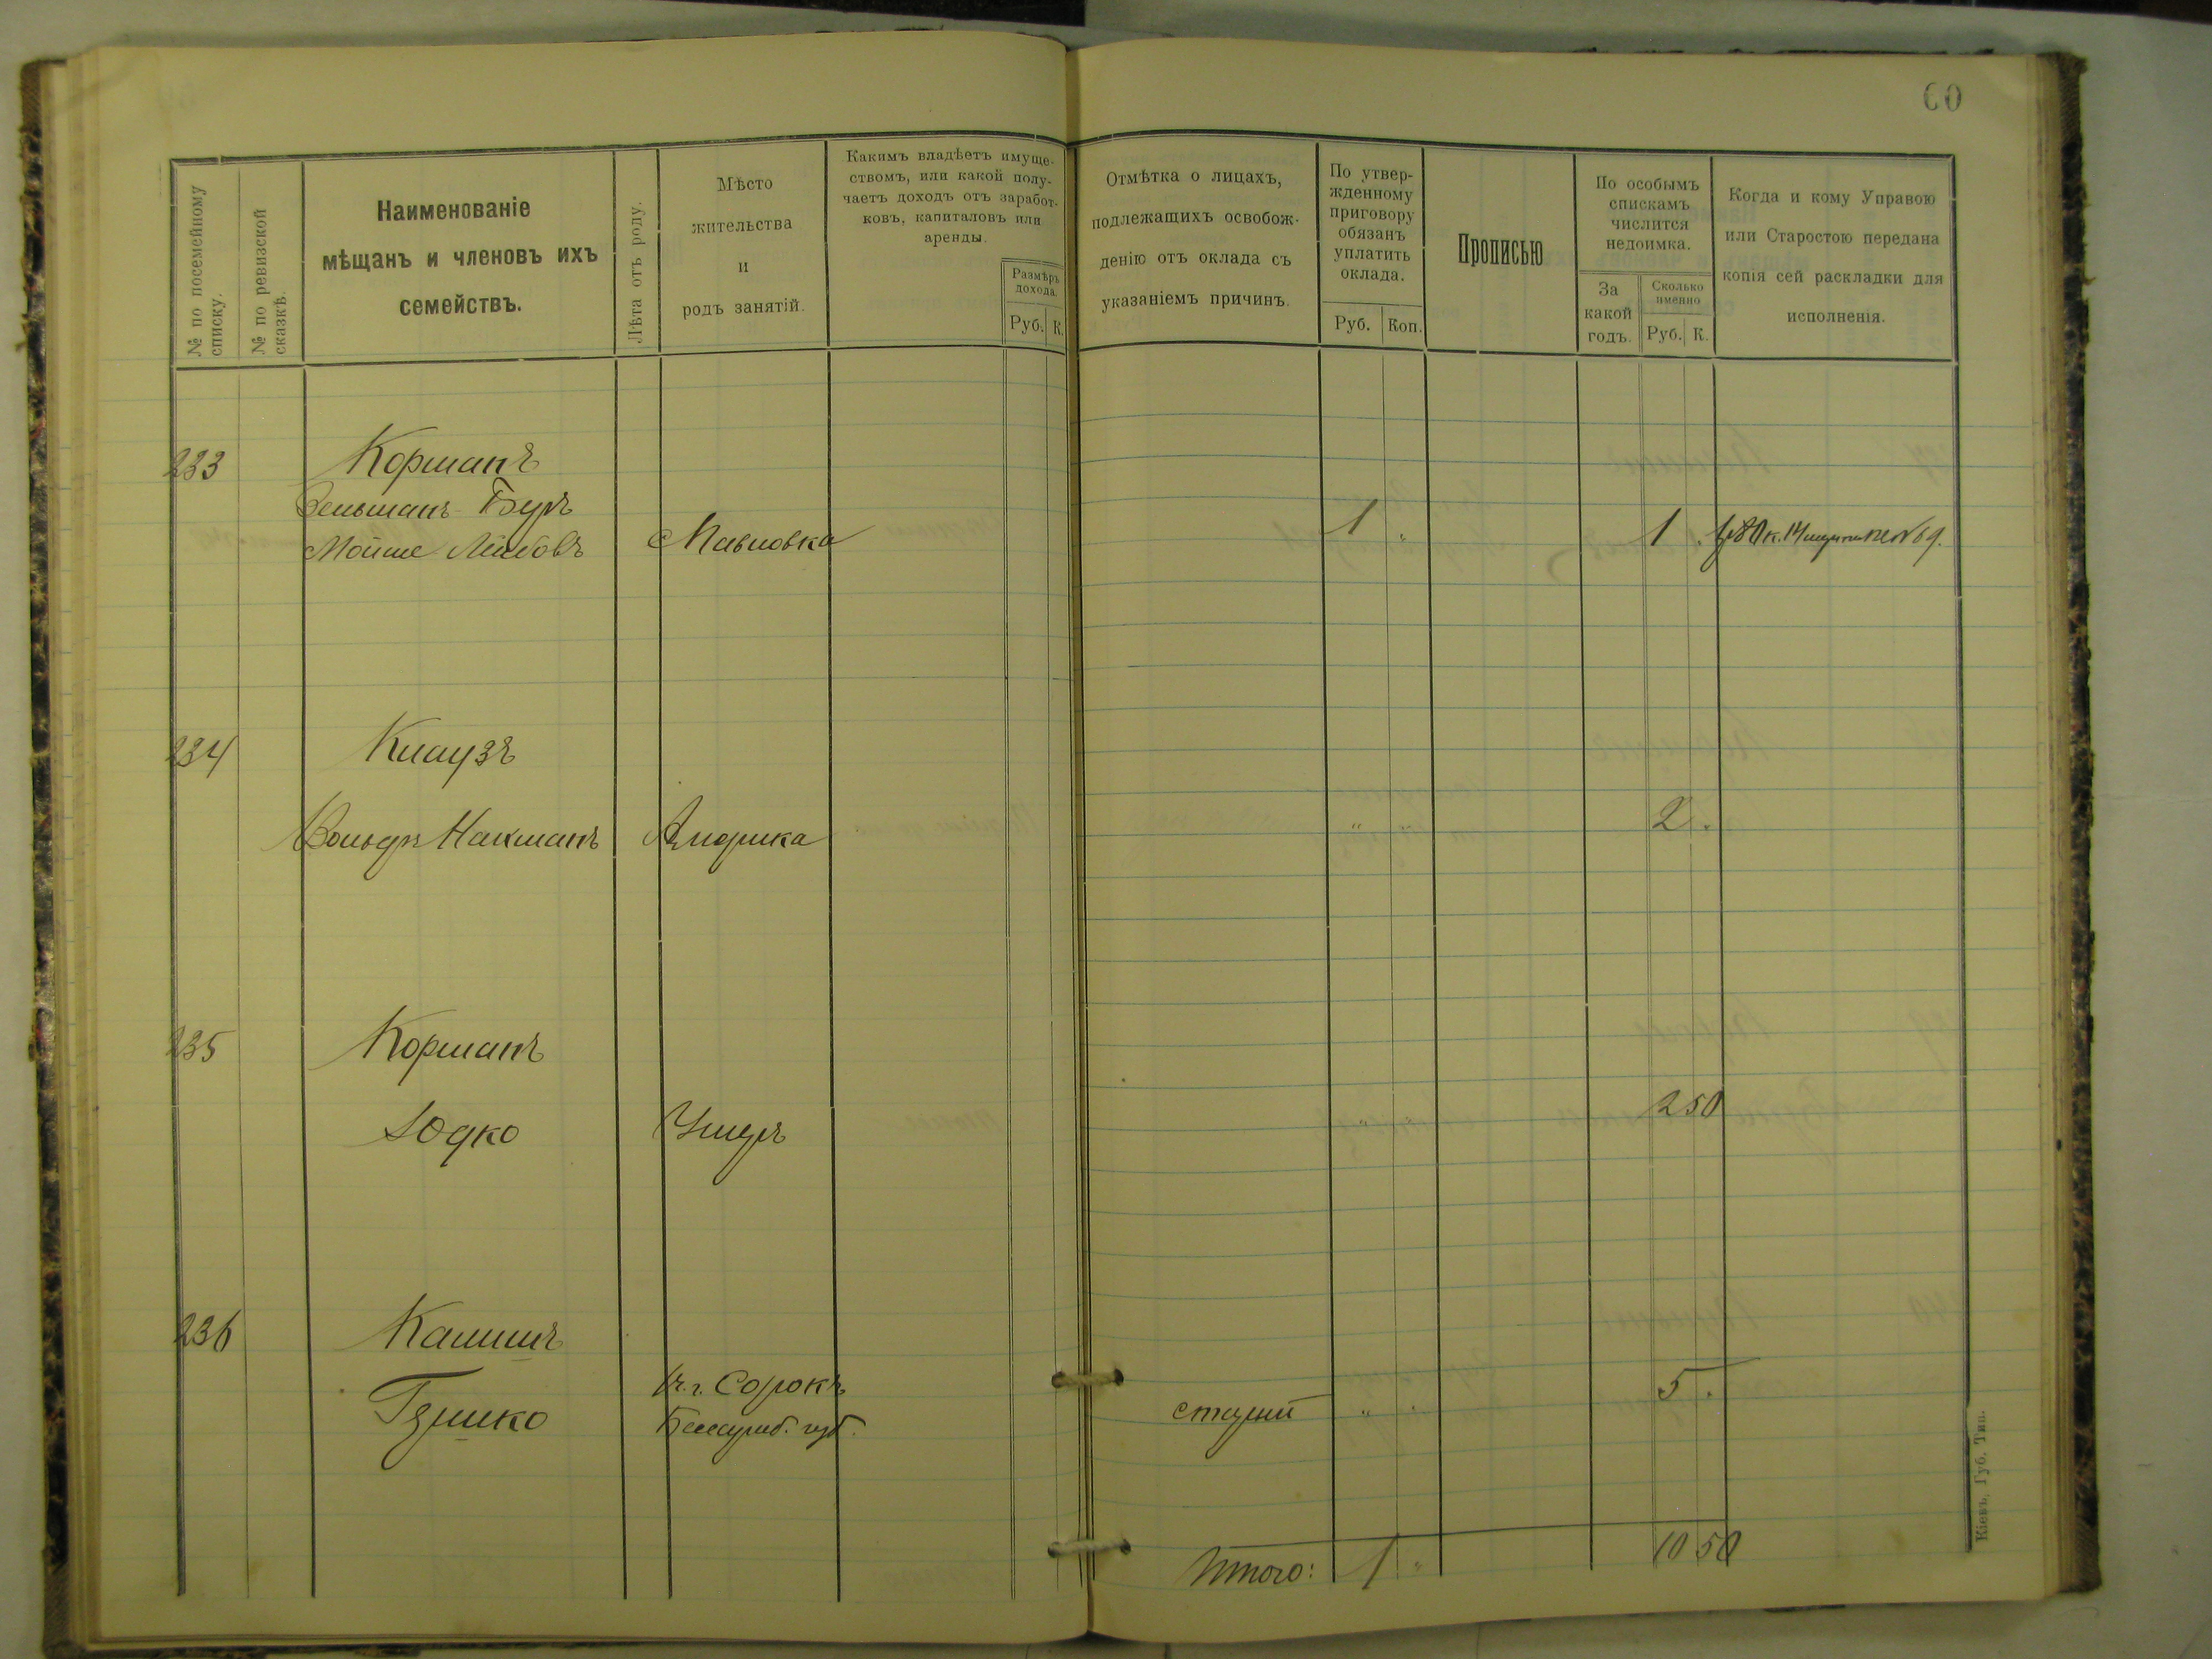 60
№ по посемейному списку.
№ по ревизской сказкѣ.
Наименованіе
мѣщанъ и членовъ ихъ
семействъ.
Лѣта отъ роду.
Мѣсто
жительства
и
родъ занятій.
Какимъ владѣетъ имуще-
ствомъ, или какой полу-
чаетъ доходъ отъ заработ-
ковъ, капиталовъ или
аренды.
Размѣръ
дохода.
Руб. К.
Отмѣтка о лицахъ,
подлежащихъ освобож-
денію отъ оклада съ
указаніемъ причинъ.
По утвер-
жденному
приговору
обязанъ
уплатить
оклада.
Руб. Коп.
Прописью
По особымъ
спискамъ
числится
недоимка.
За
какой
годъ.
Сколько
именно
Руб. К.
Когда и кому Управою
или Старостою передана
копія сей раскладки для
исполненія.
233 Корманъ
Зельманъ-Беръ
Мойше Лейбовъ 1 " 1 .
234 Клаузъ
Вольфъ Нахманъ Америка " " 2 .
235 Корманъ
Юдко " " 2 50
236 Калишъ
Гершко г. Сорокъ
Бессараб. губ. старый " " 5 .
Итого: 1 " 10 50
Кіевъ, Губ. Тип.